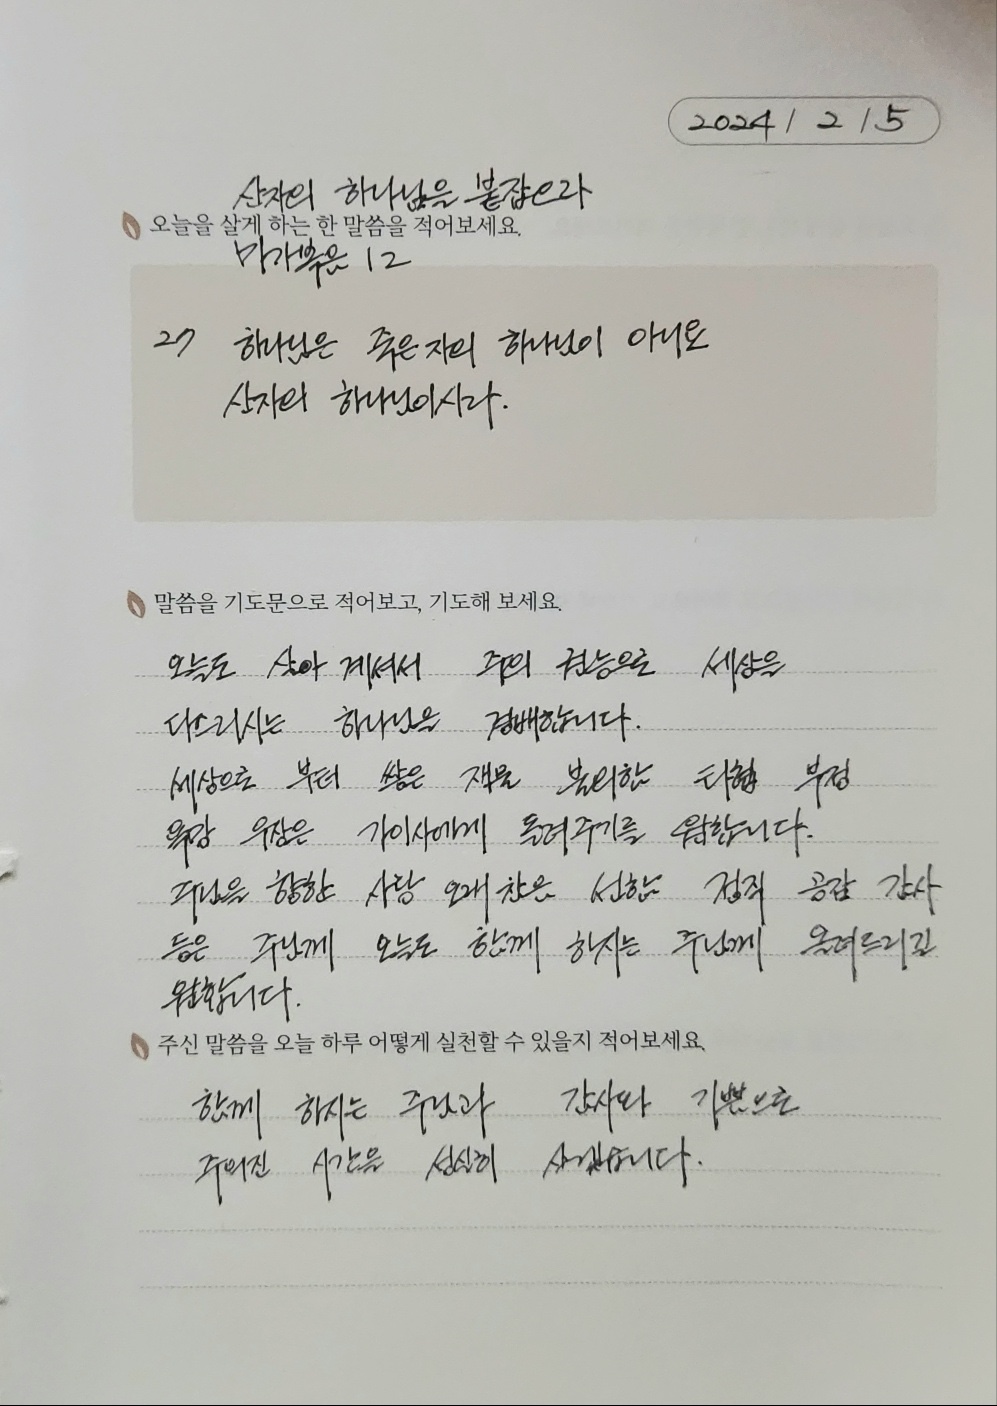 2024 / 2 / 5
산자의 하나님을 붙잡으라
오늘을 살게 하는 한 말씀을 적어보세요.
마가복음 12
27 하나님은 죽은 자의 하나님이 아니요
산자의 하나님이시라.
말씀을 기도문으로 적어보고, 기도해 보세요.
오늘도 살아 계셔서 주의 권능으로 세상을
다스리시는 하나님을 경배합니다.
세상으로 부터 쌓은 재물 불의한 타협 부정
욕망 우상은 가이사에게 돌려주기를 원합니다.
주님을 향한 사랑 오래 참은 선한 정직 공감 감사
등은 주님께 오늘도 함께 하시는 주님께 올려드리길
원합니다.
주신 말씀을 오늘 하루 어떻게 실천할 수 있을지 적어보세요.
함께 하시는 주님과 감사와 기쁨으로
주어진 시간을 성실히 살겠습니다.